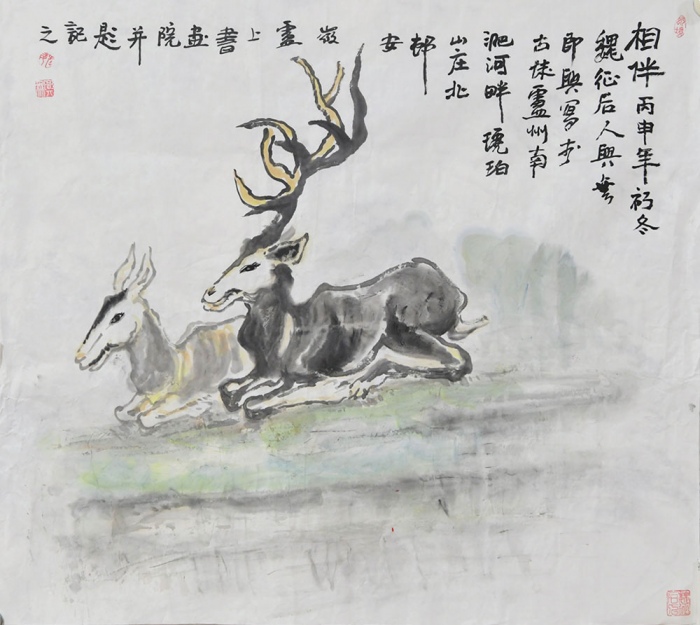 相伴丙申年初冬
魏征后人與無
即興寫於
古城盧州南
淝河畔琥珀
山庄北
邨
安徽靈上書畫院并題記之